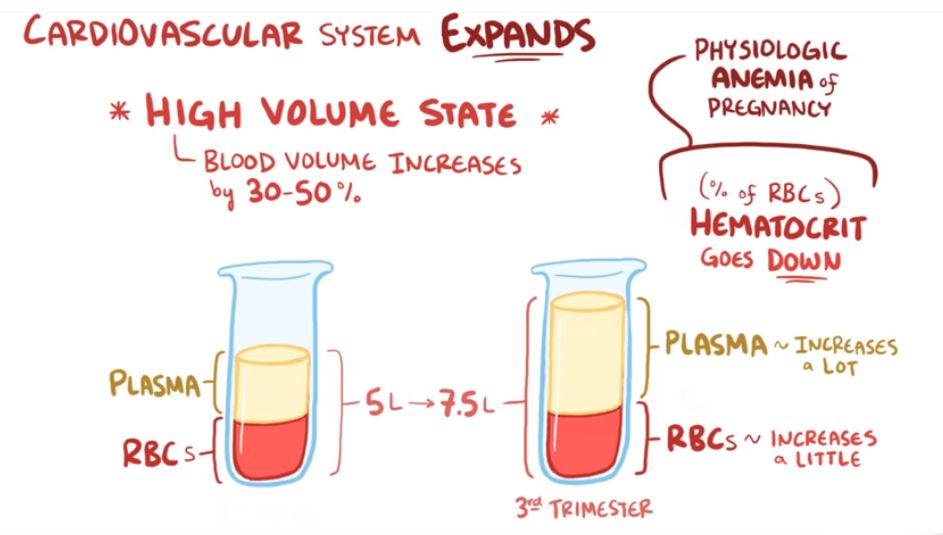 CARDIOVASCULAR SYSTEM EXPANDS
* HIGH VOLUME STATE *
BLOOD VOLUME INCREASES
by 30-50%
PHYSIOLOGIC
ANEMIA of
PREGNANCY
(% of RBCs)
HEMATOCRIT
GOES DOWN
PLASMA
RBCs
5L → 7.5L
PLASMA ~ INCREASES
a LOT
RBCs ~ INCREASES
a LITTLE
3rd TRIMESTER